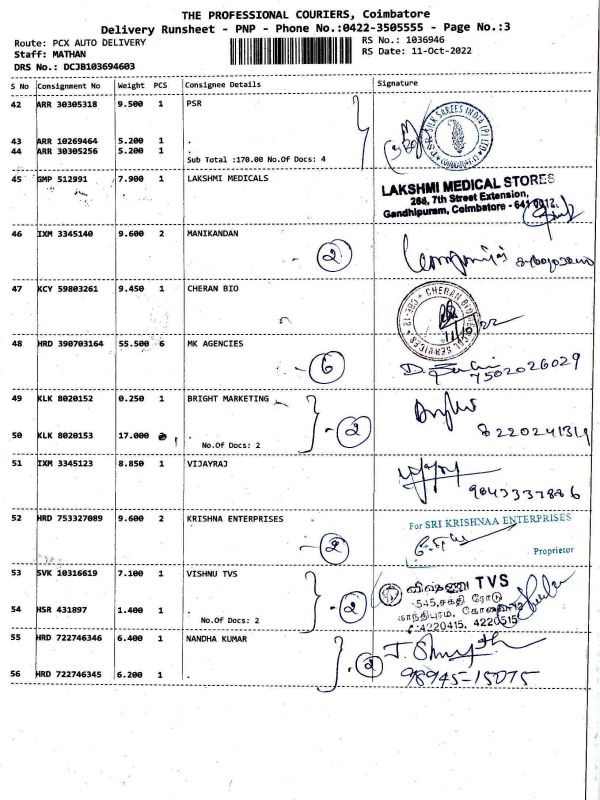 THE PROFESSIONAL COURIERS, Coimbatore
Delivery Runsheet - PNP - Phone No.:0422-3505555 - Page No.:3
Route: PCX AUTO DELIVERY
RS No.: 1036946
Staff: MATHAN
RS Date: 11-Oct-2022
DRS No.: DCJB103694603
S No Consignment No Weight PCS Consignee Details Signature
42 ARR 30305318 9.500 1 PSR
43 ARR 10269464 5.200 1 .
44 ARR 30305256 5.200 1 .
Sub Total :170.00 No.Of Docs: 4
45 GMP 512991 7.900 1 LAKSHMI MEDICALS
LAKSHMI MEDICAL STORES
268, 7th Street Extension,
Gandhipuram, Coimbatore - 641 0012.
46 IXM 3345140 9.600 2 MANIKANDAN
2
47 KCY 59803261 9.450 1 CHERAN BIO
48 HRD 390703164 55.500 6 MK AGENCIES
6
7502026029
49 KLK 8020152 0.250 1 BRIGHT MARKETING
2
50 KLK 8020153 17.000 1 .
No.Of Docs: 2
51 IXM 3345123 8.850 1 VIJAYRAJ
52 HRD 753327089 9.600 2 KRISHNA ENTERPRISES
2
For SRI KRISHNAA ENTERPRISES
Proprietor
53 SVK 10316619 7.100 1 VISHNU TVS
2
விஷ்ணு TVS
545,சக்தி ரோடு
காந்திபுரம், கோவை-12
: 4220415, 4220515
54 HSR 431897 1.400 1 .
No.Of Docs: 2
55 HRD 722746346 6.400 1 NANDHA KUMAR
2
98945-15075
56 HRD 722746345 6.200 1 .